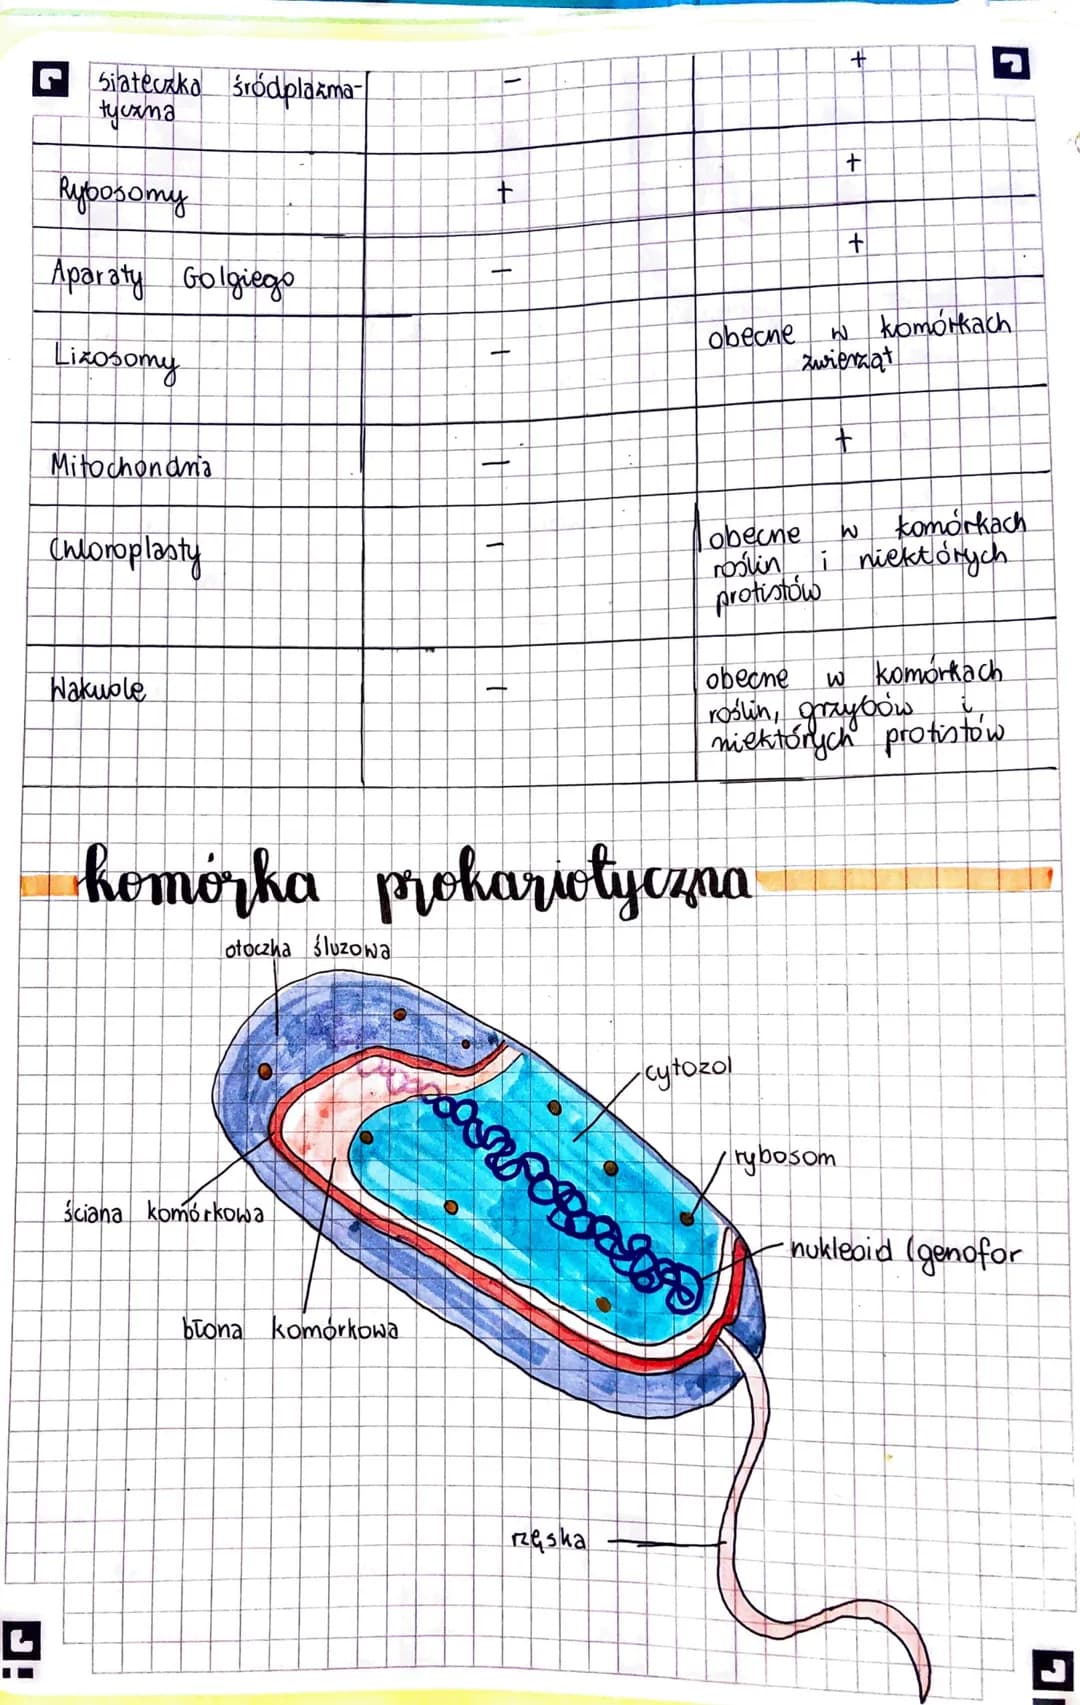 siateczka śródplazma-
tyczna
-
+
Rybosomy
+
+
Aparaty Golgiego
-
+
Lizosomy
-
obecne w komórkach
zwierząt
Mitochondria
-
+
Chloroplasty
-
obecne w komórkach
roślin i niektórych
protistów
Wakuole
-
obecne w komórkach
roślin, grzybów i
niektórych protistów
komórka prokariotyczna
otoczka śluzowa
cytozol
rybosom
ściana komórkowa
nukleoid (genofor
błona komórkowa
rzęska